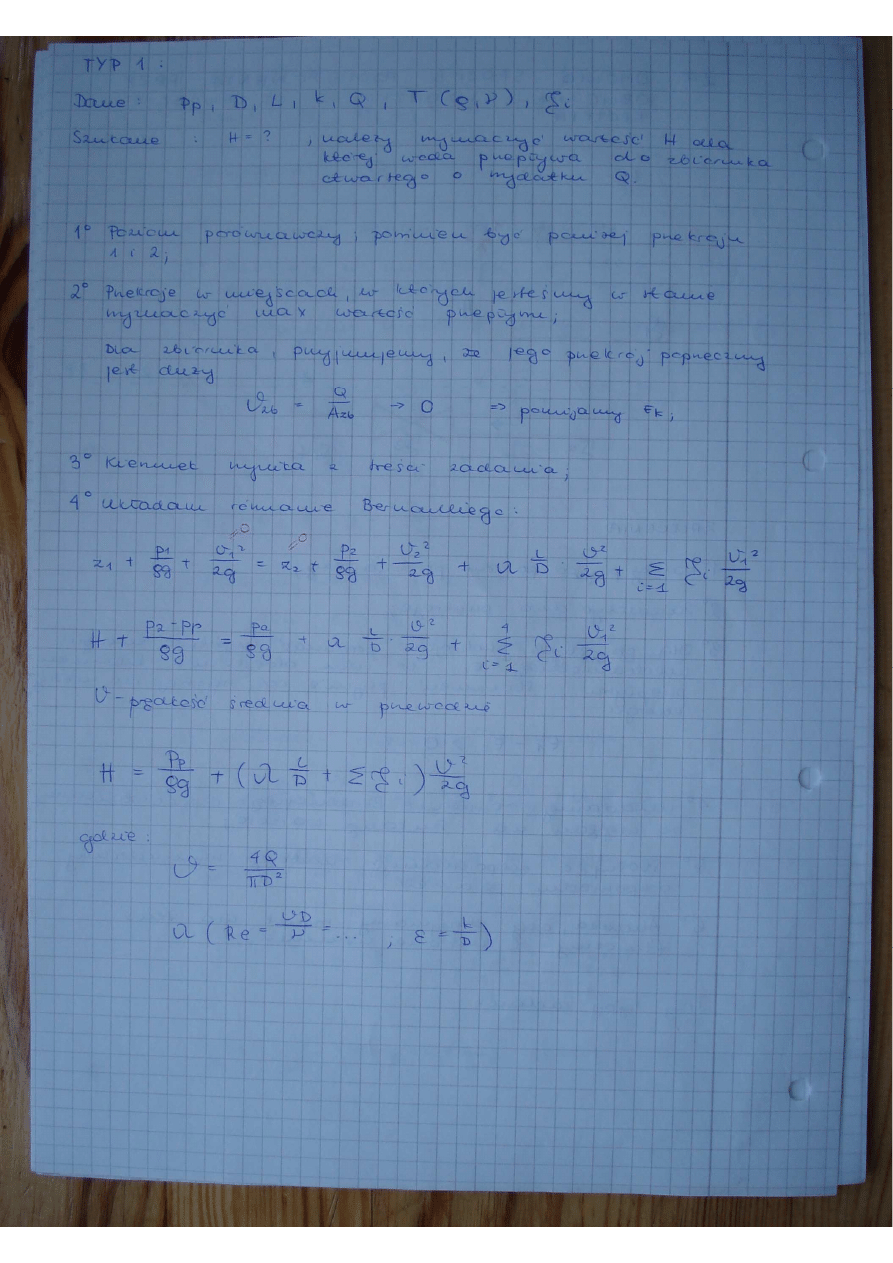 TYP 1:
Dane: Pp, D, L, k, Q, T (ρ,ν), ξi
Szukane: H = ?, należy wyznaczyć wartość H dla
której woda przepływa do zbiornika
otwartego o wydatku Q.
1° Poziom porównawczy, powinien być poniżej przekroju
1 i 2;
2° Przekroje w miejscach, w których jesteśmy w stanie
wyznaczyć max wartość przepływu;
Dla zbiornika, przyjmujemy, że jego przekrój poprzeczny
jest duży
υzb = Q/Azb → 0 => pomijamy Ek;
3° Kierunek wynika z treści zadania;
4° Układam równanie Bernoulliego:
z1 + p1/ρg + υ1²/2g = z2 + p2/ρg + υ2²/2g + λ L/D · υ²/2g + Σ i=1 ξi υ1²/2g
H + (pa-pp)/ρg = pa/ρg + λ L/D · υ²/2g + Σ 4 i=1 ξi υ1²/2g
υ - prędkość średnia w przewodzie
H = Pp/ρg + (λ L/D + Σ ξi) υ²/2g
gdzie:
υ = 4Q/πD²
λ (Re = υD/ν = ... , ε = k/D)